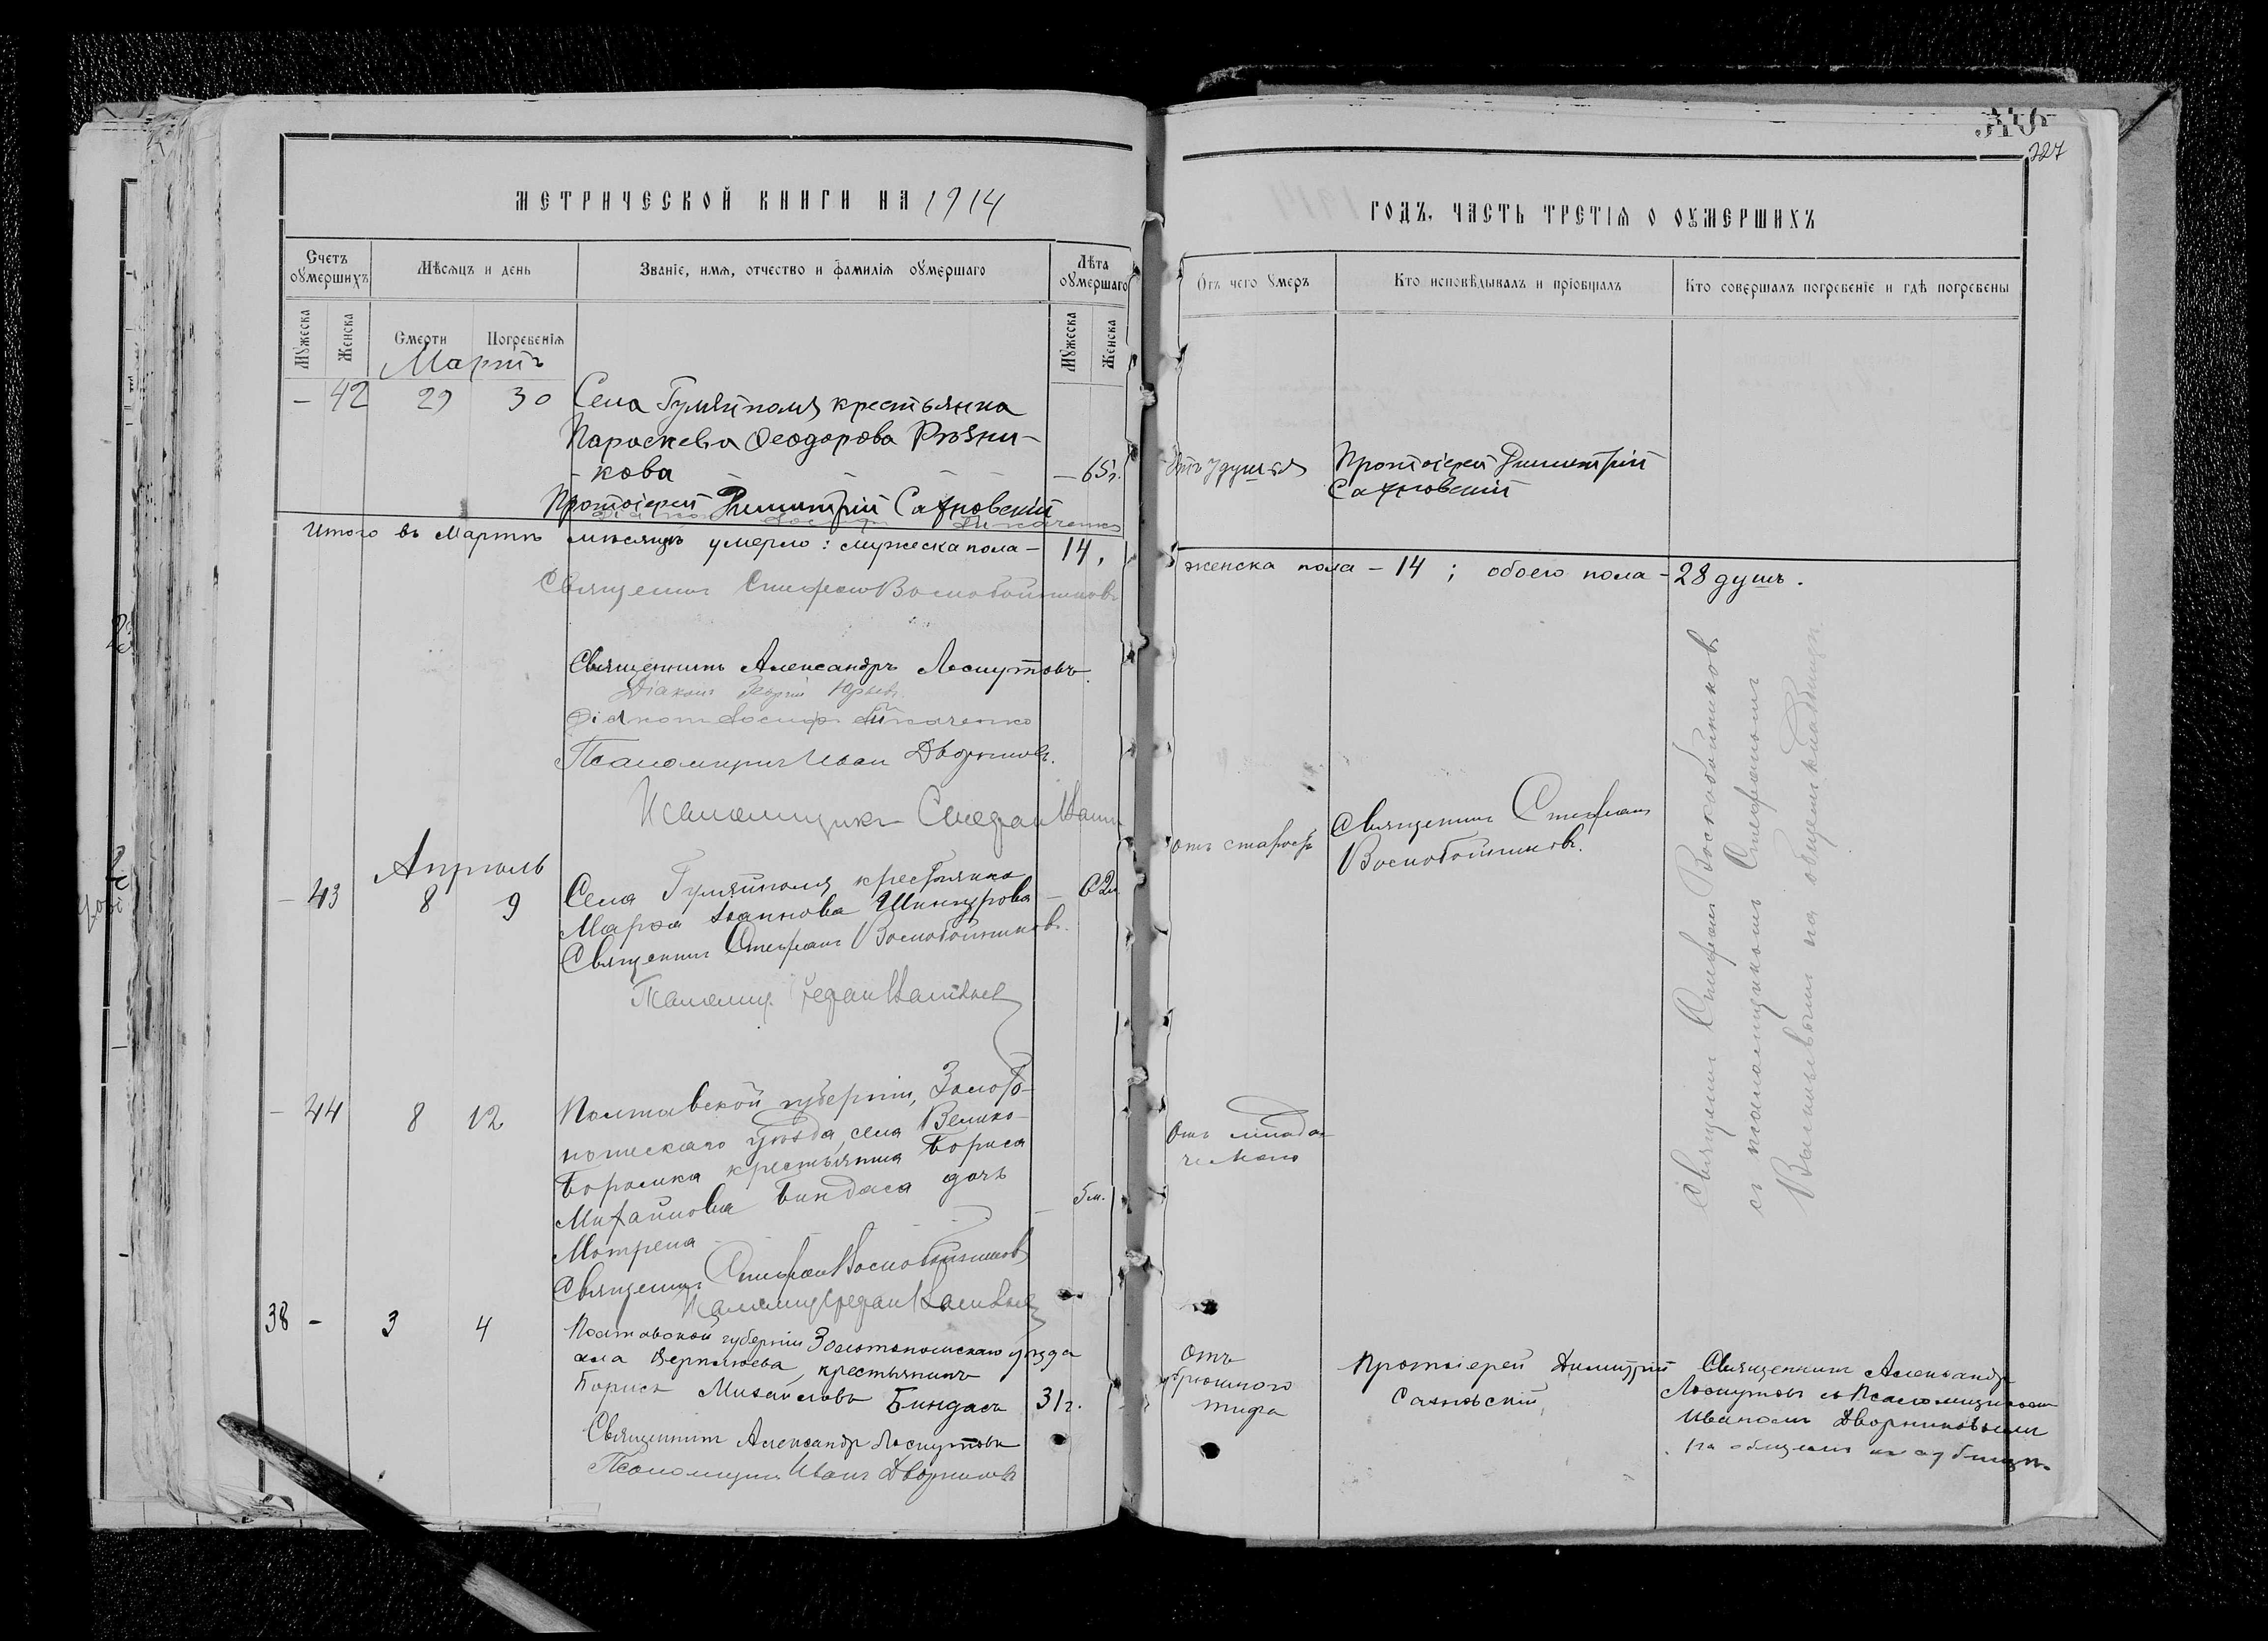 346
227
МЕТРИЧЕСКОЙ КНИГИ НА 1914
ГОДЪ, ЧАСТЬ ТРЕТІЯ О ОУМЕРШИХЪ
Счетъ оумершихъ
Мѣсяцъ и день
Званіе, имя, отчество и фамилія оумершаго
Лѣта оумершаго
Отъ чего умеръ
Кто исповѣдывалъ и пріобщалъ
Кто совершалъ погребеніе и гдѣ погребены
Мужеска
Женска
Смерти
Погребенія
Мужеска
Женска
Мартъ
— 42 29 30 Села Гуляйполя крестьянка
Параскева Ѳеодорова Рѣзни-
-кова — 65 г.
Отъ удушья
Протоіерей Димитрій
Сахновскій
Протоіерей Димитрій Сахновскій
Діаконъ Іосифъ Ткаченко
Итого въ Мартѣ мѣсяцѣ умерло: мужеска пола — 14,
женска пола — 14; обоего пола — 28 душъ.
Священникъ Стефанъ Воскобойниковъ
Священникъ Александръ Лоскутовъ.
Діаконъ Георгій Юрьевъ
Діаконъ Іосифъ Ткаченко
Псаломщикъ Иванъ Дворниковъ.
Псаломщикъ
Апрѣль
— 43 8 9 Села Гуляйполя крестьянка
Марѳа Іоаннова Шинкурова — 62 г.
Отъ старости
Священникъ Стефанъ
Воскобойниковъ.
Священникъ Стефанъ Воскобойниковъ.
Псаломщ. Васильев
Священникъ Стефанъ Воскобойниковъ
съ псаломщикомъ Стефаномъ
Васильевымъ на общемъ кладбищѣ.
— 44 8 12 Полтавской губерніи, Золото-
ношскаго уѣзда, села Велико-
Бурлика крестьянина Бориса
Михайлова Биндаса дочь
Мотрена — 5 м.
Отъ младен-
ческаго
Священникъ Стефанъ Воскобойниковъ
Псаломщ Васильев
38 — 3 4 Полтавской губерніи Золотоношскаго уѣзда
села крестьянинъ
Борисъ Михайловъ Биндасъ 31 г.
Отъ
брюшного
тифа
Протоіерей Димитрій
Сахновскій
Священникъ Александр
Лоскутовъ съ Псаломщикомъ
Иваномъ Дворниковымъ
на общемъ кладбищѣ.
Священникъ Александръ Лоскутовъ
Псаломщикъ Иванъ Дворниковъ